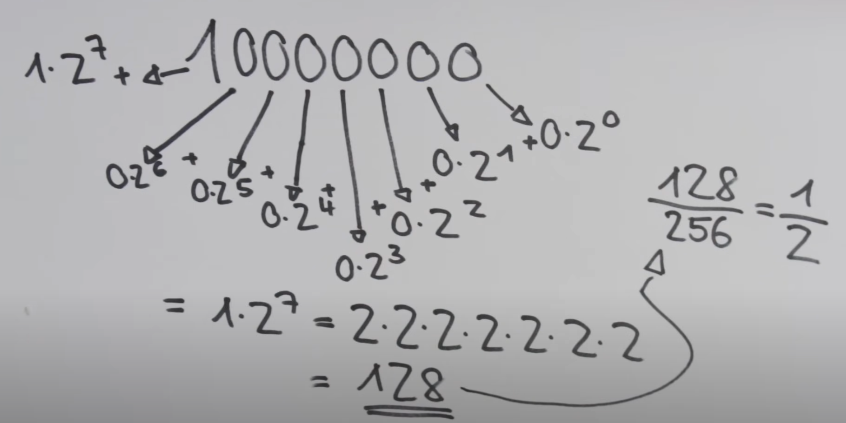 1·2⁷ + 10000000
0·2⁶ + 0·2⁵ + 0·2⁴ + 0·2³ + 0·2² + 0·2¹ + 0·2⁰
= 1·2⁷ = 2·2·2·2·2·2·2
= 128
128/256 = 1/2